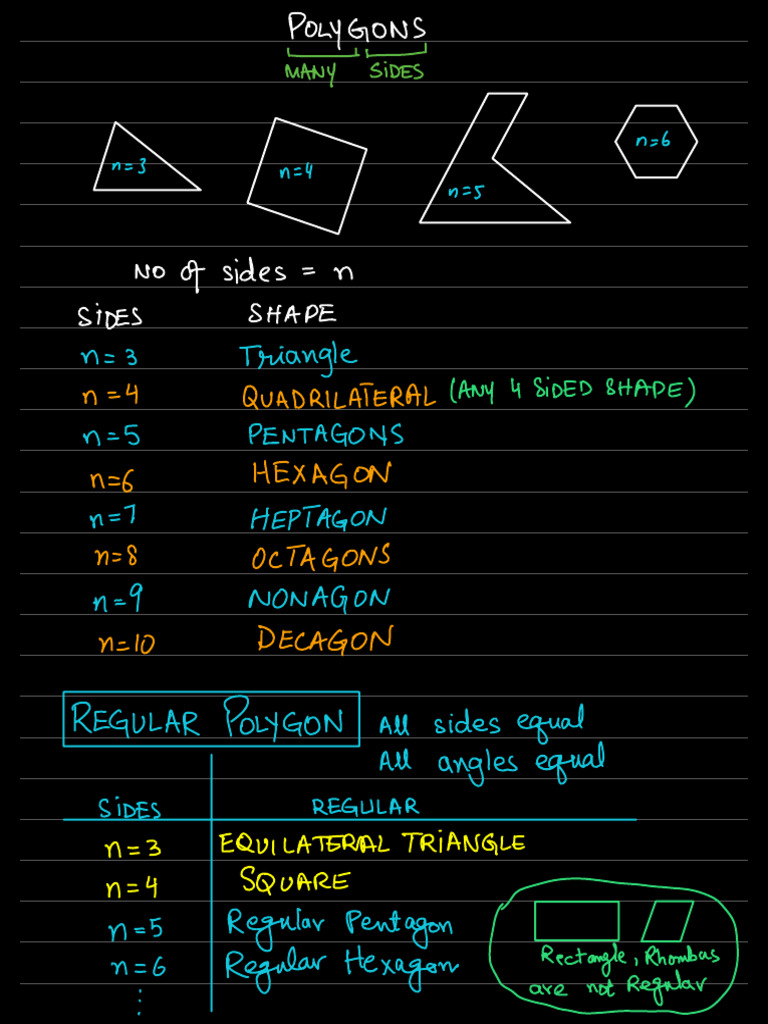 POLYGONS
MANY SIDES
n=3
n=4
n=5
n=6
NO of sides = n
SIDES SHAPE
n=3 Triangle
n=4 QUADRILATERAL (ANY 4 SIDED SHAPE)
n=5 PENTAGONS
n=6 HEXAGON
n=7 HEPTAGON
n=8 OCTAGONS
n=9 NONAGON
n=10 DECAGON
REGULAR POLYGON All sides equal
All angles equal
SIDES REGULAR
n=3 EQUILATERAL TRIANGLE
n=4 SQUARE
n=5 Regular Pentagon
n=6 Regular Hexagon
Rectangle, Rhombas
are not Regular